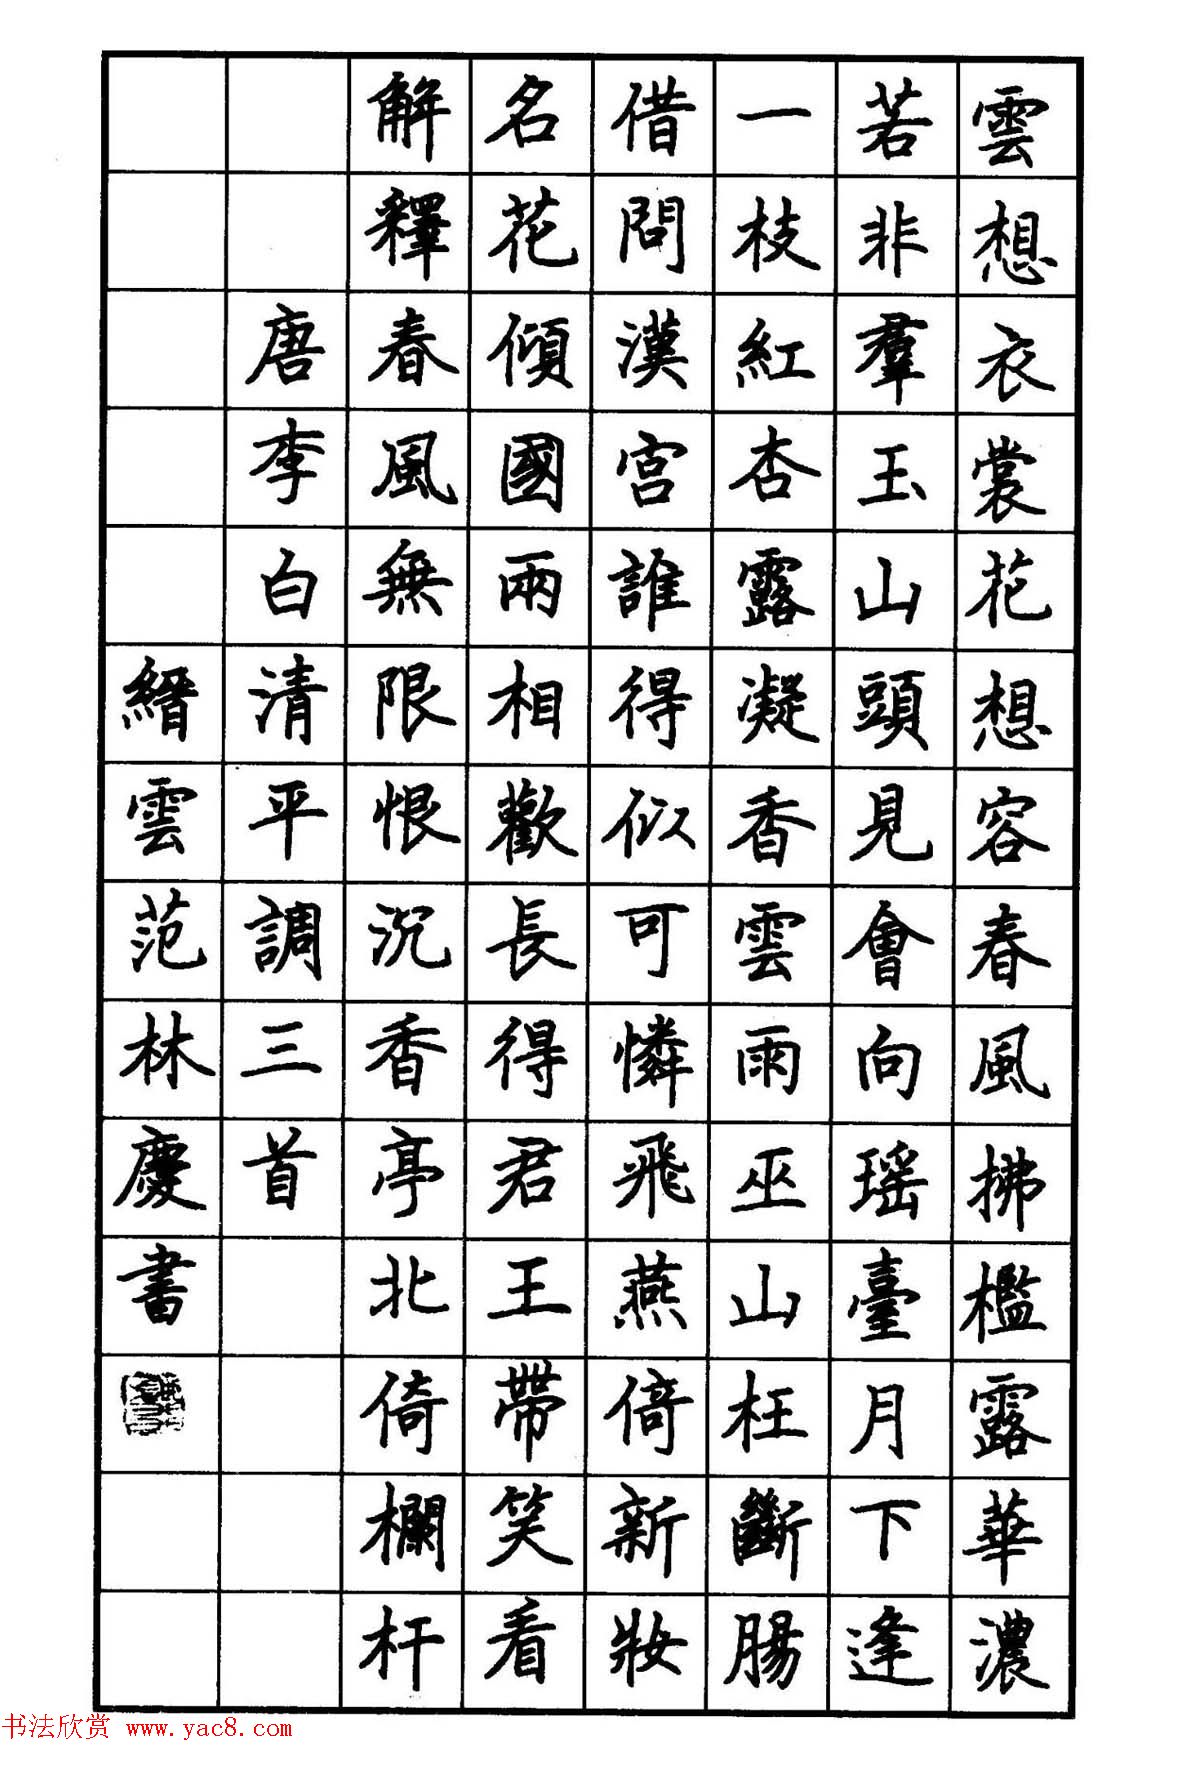 雲想衣裳花想容春風拂檻露華濃
若非羣玉山頭見會向瑶臺月下逢
一枝紅杏露凝香雲雨巫山枉斷腸
借問漢宮誰得似可憐飛燕倚新妝
名花傾國兩相歡長得君王帶笑看
解釋春風無限恨沉香亭北倚欄杆
唐李白清平調三首
縉雲范林慶書
书法欣赏 www.yac8.com